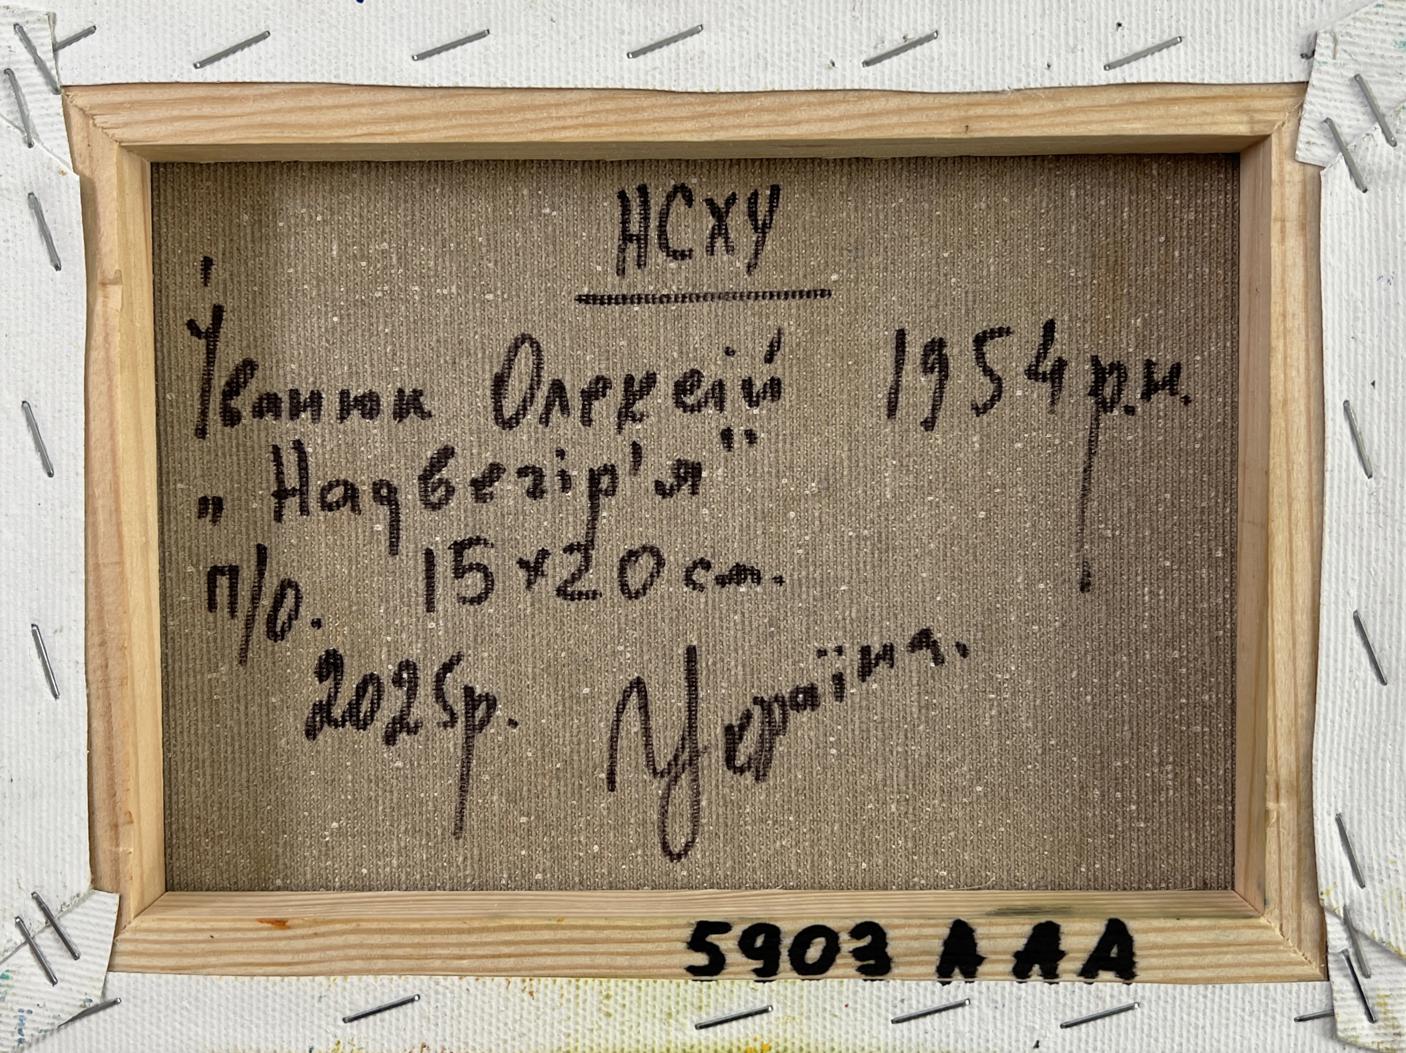 НСХУ
Іванюк Олексій 1954 р.н.
„Надвечір'я"
п/о. 15×20 см.
2025р. Україна.
5903 ААА